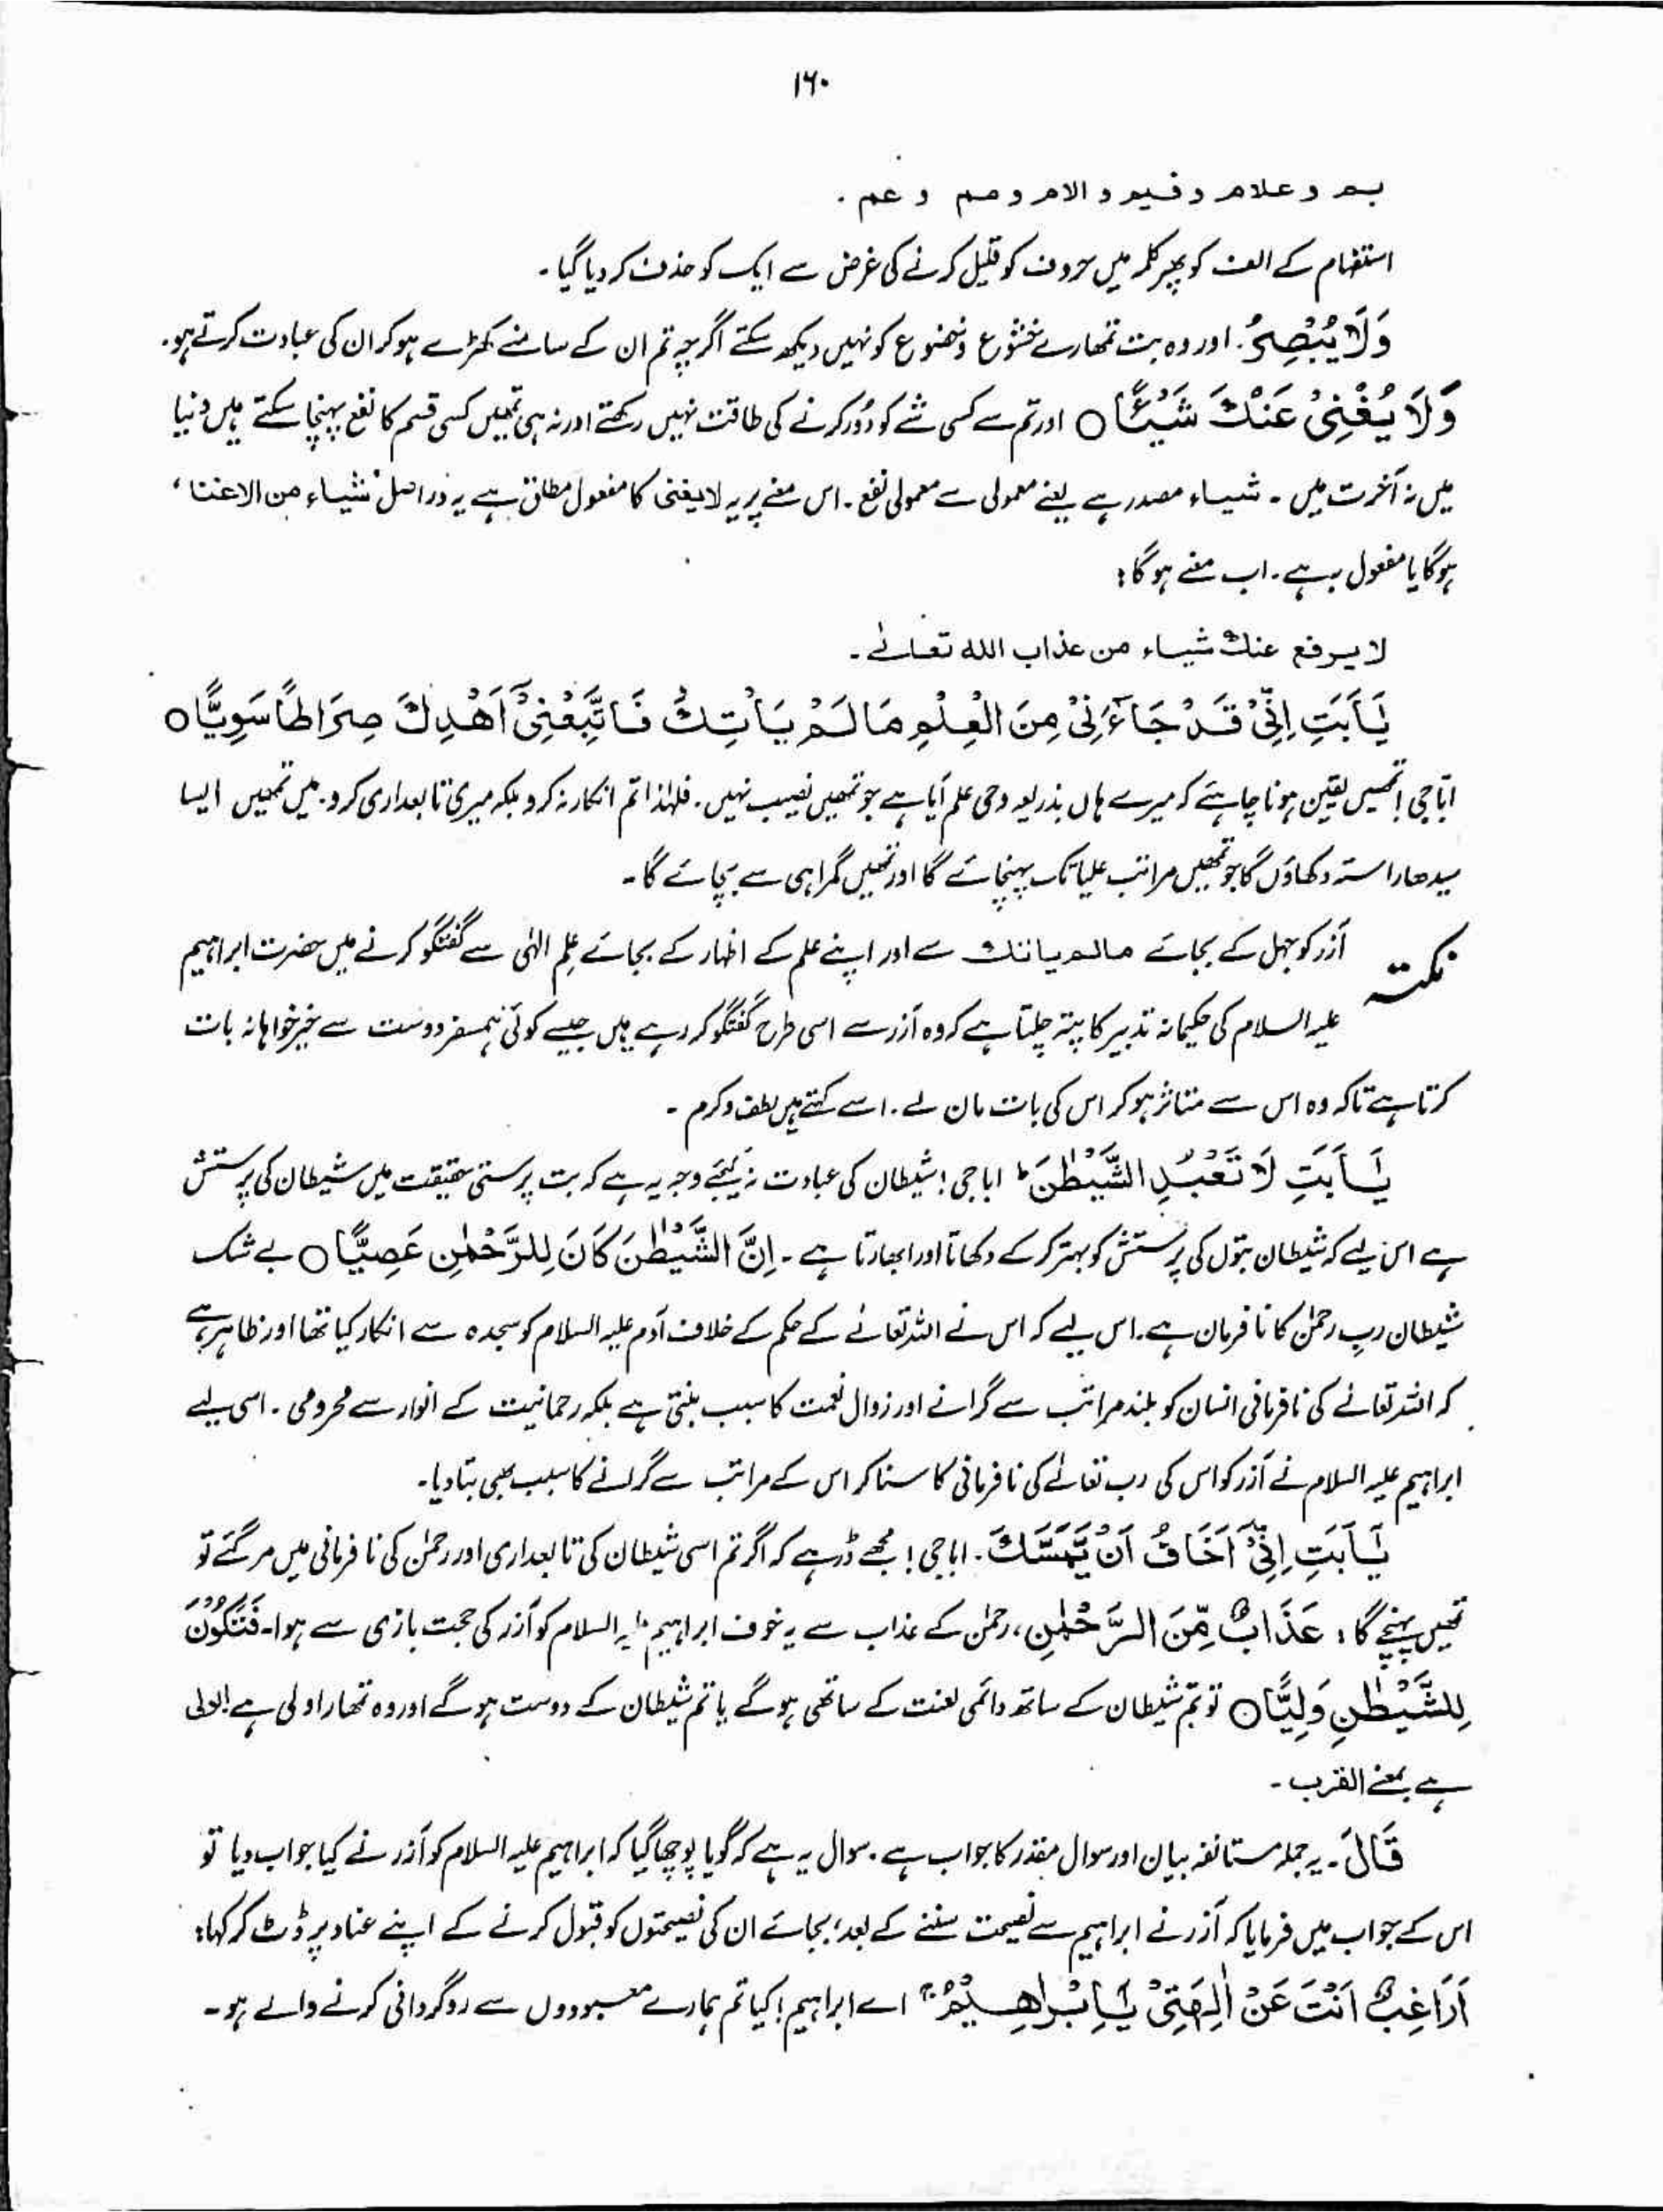 ۱۶۰
بم و علام و فیم و الام و مم و عم ۔
استفہام کے الف کو پھر کلمہ میں حروف کو قلیل کرنے کی غرض سے ایک کو حذف کر دیا گیا ۔
وَلَا یُبْصِرُ. اور وہ بت تمھارے خشوع و خضوع کو نہیں دیکھ سکتے اگرچہ تم ان کے سامنے کھڑے ہو کر ان کی عبادت کرتے ہو۔
وَّلَا یُغْنِیْ عَنْكَ شَیْـًٔا ○ اور تم سے کسی شے کو دُور کرنے کی طاقت نہیں رکھتے اور نہ ہی تمہیں کسی قسم کا نفع پہنچا سکتے ہیں دنیا
میں نہ آخرت میں ۔ شیاء مصدر ہے یعنے معمولی سے معمولی نفع ۔ اس معنے پر یہ لا یغنی کا مفعول مطلق ہے یہ دراصل شیاء من الاغنا ،
ہوگا یا مفعول بہ ہے ۔ اب معنے ہوگا :
لا یرفع عنك شیاء من عذاب الله تعالےٰ ۔
یٰۤاَبَتِ اِنِّیْ قَدْ جَآءَنِیْ مِنَ الْعِلْمِ مَا لَمْ یَاْتِكَ فَاتَّبِعْنِیْۤ اَهْدِكَ صِرَاطًا سَوِیًّا ○
ابّا جی ! تمھیں یقین ہونا چاہئے کہ میرے ہاں بذریعہ وحی علم آیا ہے جو تمھیں نصیب نہیں ۔ فلہٰذا تم انکار نہ کرو بلکہ میری تابعداری کرو۔ میں تمھیں ایسا
سیدھا راستہ دکھاؤں گا جو تمھیں مراتب علیا تک پہنچائے گا اور تمھیں گمراہی سے بچائے گا ۔
نکتہ آزر کو جہل کے بجائے مالم یاتك سے اور اپنے علم کے اظہار کے بجائے علم الٰہی سے گفتگو کرنے میں حضرت ابراہیم
علیہ السلام کی حکیمانہ تدبیر کا پتہ چلتا ہے کہ وہ آزر سے اسی طرح گفتگو کر رہے ہیں جیسے کوئی ہمسفر دوست سے خیر خواہانہ بات
کرتا ہے تاکہ وہ اس سے متاثر ہو کر اس کی بات مان لے ۔ اسے کہتے ہیں لطف و کرم ۔
یٰۤاَبَتِ لَا تَعْبُدِ الشَّیْطٰنَ ؕ ابا جی ! شیطان کی عبادت نہ کیجئے وجہ یہ ہے کہ بت پرستی حقیقت میں شیطان کی پرستش
ہے اس لیے کہ شیطان بتوں کی پرستش کو بہتر کر کے دکھاتا اور ابھارتا ہے ۔ اِنَّ الشَّیْطٰنَ كَانَ لِلرَّحْمٰنِ عَصِیًّا ○ بے شک
شیطان ربِ رحمٰن کا نافرمان ہے۔ اس لیے کہ اس نے اللہ تعالےٰ کے حکم کے خلاف آدم علیہ السلام کو سجدہ سے انکار کیا تھا اور ظاہر ہے
کہ اللہ تعالےٰ کی نافرمانی انسان کو بلند مراتب سے گرانے اور زوال نعمت کا سبب بنتی ہے بلکہ رحمانیت کے انوار سے محرومی ۔ اسی لیے
ابراہیم علیہ السلام نے آزر کو اس کی رب تعالےٰ کی نافرمانی کا سنا کر اس کے مراتب سے گرانے کا سبب بھی بتا دیا۔
یٰۤاَبَتِ اِنِّیْۤ اَخَافُ اَنْ یَّمَسَّكَ ۔ ابا جی ! مجھے ڈر ہے کہ اگر تم اسی شیطان کی تابعداری اور رحمٰن کی نافرمانی میں مر گئے تو
تمھیں پہنچے گا : عَذَابٌ مِّنَ الرَّحْمٰنِ ، رحمٰن کے عذاب سے یہ خوف ابراہیم علیہ السلام کو آزر کی حجت بازی سے ہوا ۔ فَتَكُوْنَ
لِلشَّیْطٰنِ وَلِیًّا ○ تو تم شیطان کے ساتھ دائمی لعنت کے ساتھی ہو گے یا تم شیطان کے دوست ہو گے اور وہ تمھارا ولی ہے الولی
ہے بمعنے القرب ۔
قَالَ ۔ یہ جملہ مستانفہ بیان اور سوال مقدر کا جواب ہے ۔ سوال یہ ہے کہ گویا پوچھا گیا کہ ابراہیم علیہ السلام کو آزر نے کیا جواب دیا تو
اس کے جواب میں فرمایا کہ آزر نے ابراہیم سے نصیحت سننے کے بعد ، بجائے ان کی نصیحتوں کو قبول کرنے کے اپنے عناد پر ڈٹ کر کہا :
اَرَاغِبٌ اَنْتَ عَنْ اٰلِهَتِیْ یٰۤاِبْرٰهِیْمُ ۚ اے ابراہیم ! کیا تم ہمارے معبودوں سے روگردانی کرنے والے ہو ۔